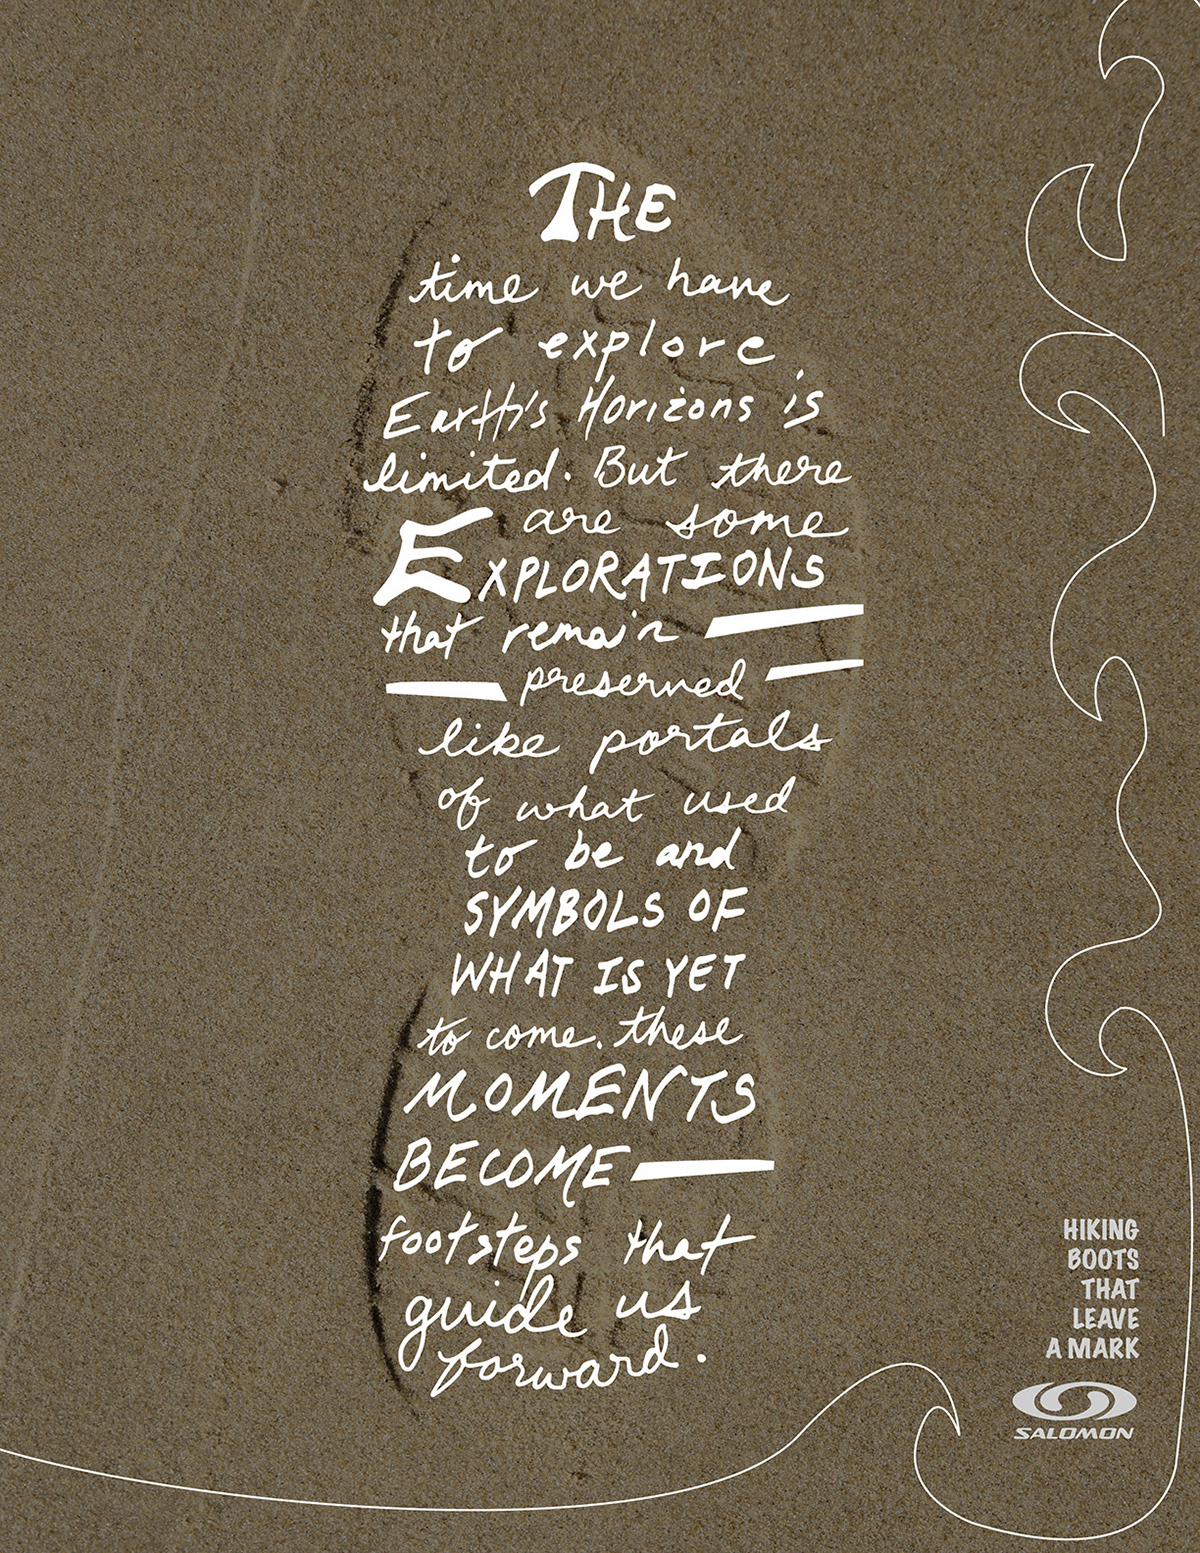 THE
time we have
to explore
Earth's Horizons is
limited. But there
are some
EXPLORATIONS
that remain
preserved
like portals
of what used
to be and
SYMBOLS OF
WHAT IS YET
to come. these
MOMENTS
BECOME
footsteps that
guide us
forward.
HIKING
BOOTS
THAT
LEAVE
A MARK
SALOMON